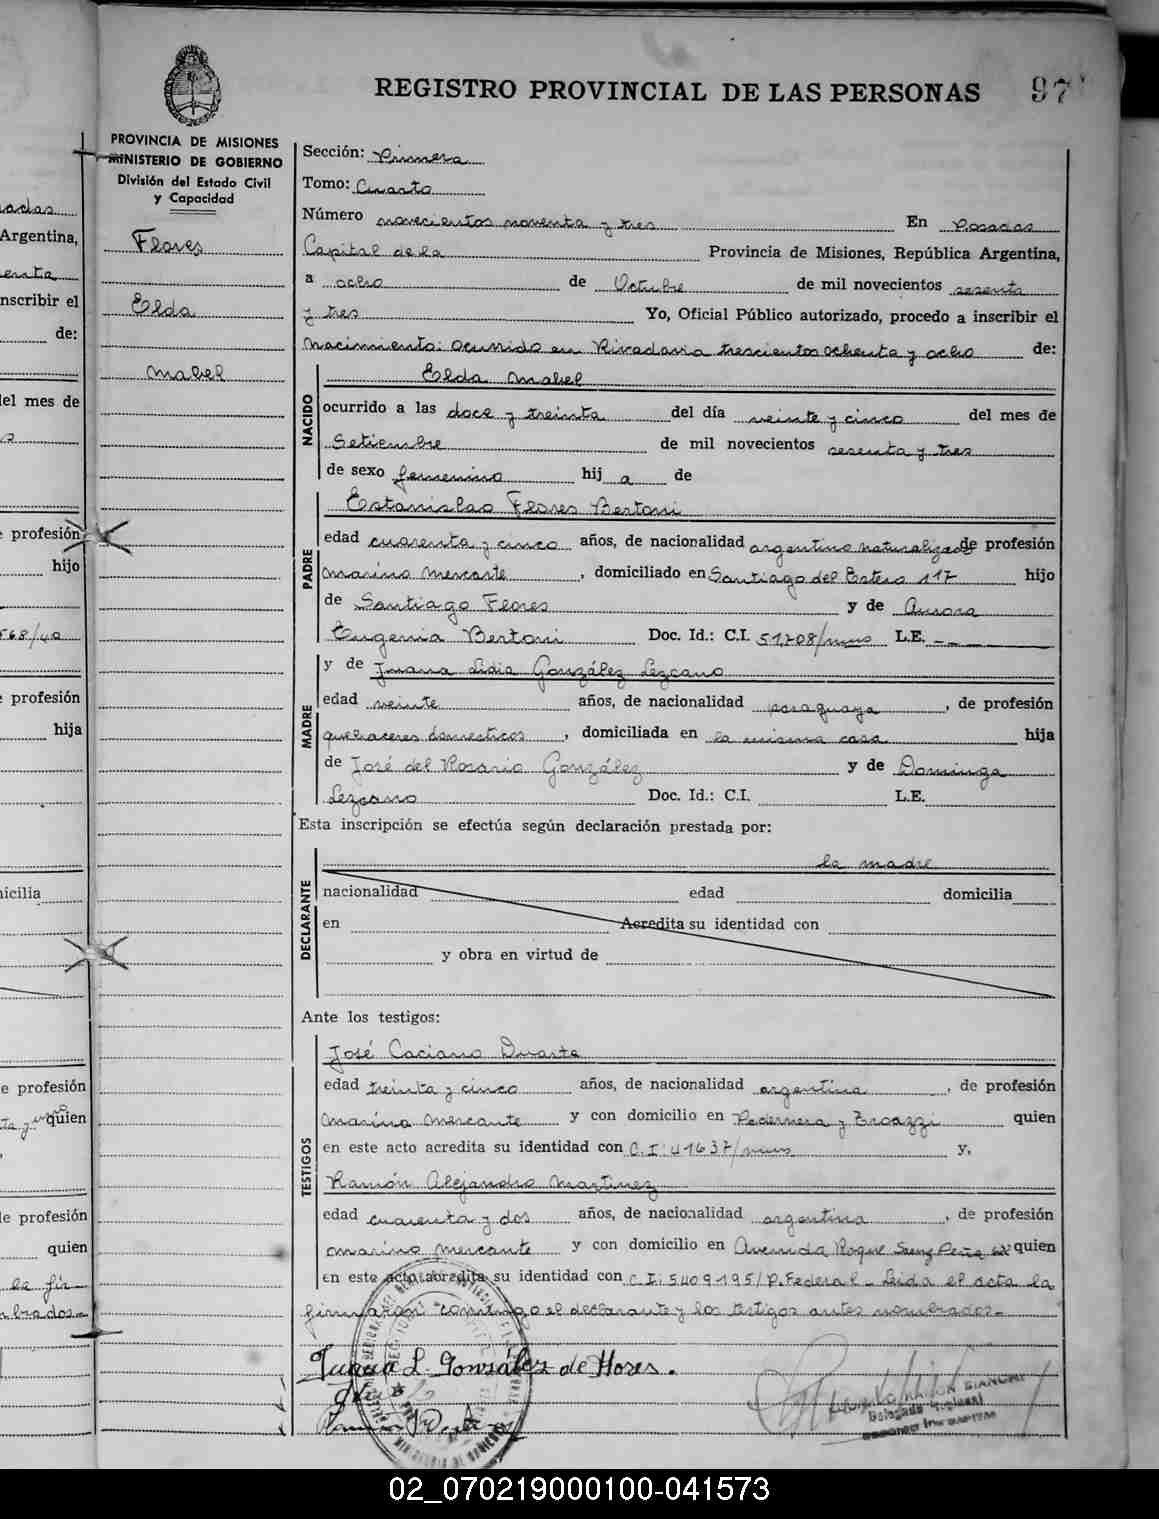 REGISTRO PROVINCIAL DE LAS PERSONAS
97
PROVINCIA DE MISIONES
MINISTERIO DE GOBIERNO
División del Estado Civil
y Capacidad
Flores
Elda
Mabel
Sección: Primera
Tomo: Cuarto
Número novecientos noventa y tres En Posadas
Capital de la Provincia de Misiones, República Argentina,
a ocho de Octubre de mil novecientos sesenta
y tres Yo, Oficial Público autorizado, procedo a inscribir el
Nacimiento: ocurrido en Rivadavia trescientos ochenta y ocho de:
NACIDO
Elda Mabel
ocurrido a las doce y treinta del día veinte y cinco del mes de
Setiembre de mil novecientos sesenta y tres
de sexo femenino hij a de
PADRE
Estanislao Flores Bertoni
edad cuarenta y cinco años, de nacionalidad argentino naturalizado de profesión
Marino Mercante, domiciliado en Santiago del Estero 117 hijo
de Santiago Flores y de Aurora
Eugenia Bertoni Doc. Id.: C.I. 51.708/mnes L.E. - -
MADRE
y de Juana Lidia González Lezcano
edad veinte años, de nacionalidad paraguaya, de profesión
quehaceres domesticos, domiciliada en la misma casa hija
de José del Rosario González y de Dominga
Lezcano Doc. Id.: C.I. L.E.
Esta inscripción se efectúa según declaración prestada por:
DECLARANTE
la madre
nacionalidad edad domicilia
en Acredita su identidad con
y obra en virtud de
Ante los testigos:
TESTIGOS
José Caciano Duarte
edad treinta y cinco años, de nacionalidad argentina, de profesión
Marino Mercante y con domicilio en Pedernera y quien
en este acto acredita su identidad con C.I: 41637/mnes y,
Ramón Alejandro Martinez
edad cuarenta y dos años, de nacionalidad argentina, de profesión
marino mercante y con domicilio en Avenida Roque Saenz Peña quien
en este acto acredita su identidad con C.I: 5409195/P.Federal - Leida el acta la
firmaron conmigo el declarante y los testigos antes nombrados.-
Juana L. González de Flores.
BIANCHI
02_070219000100-041573